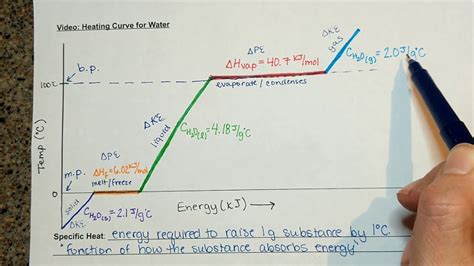 Video: Heating Curve for Water
ΔPE
ΔHvap = 40.7 kJ/mol
evaporate / condenses
ΔKE
gas
C H₂O(g) = 2.0 J/g°C
b.p.
100°C
ΔKE
liquid
C H₂O(l) = 4.18 J/g°C
Temp (°C)
m.p.
0
ΔPE
ΔHf = 6.02 kJ/mol
melt/freeze
solid
ΔKE
C H₂O(s) = 2.1 J/g°C
Energy (kJ)
Specific Heat: energy required to raise 1g substance by 1°C.
"function of how the substance absorbs energy"